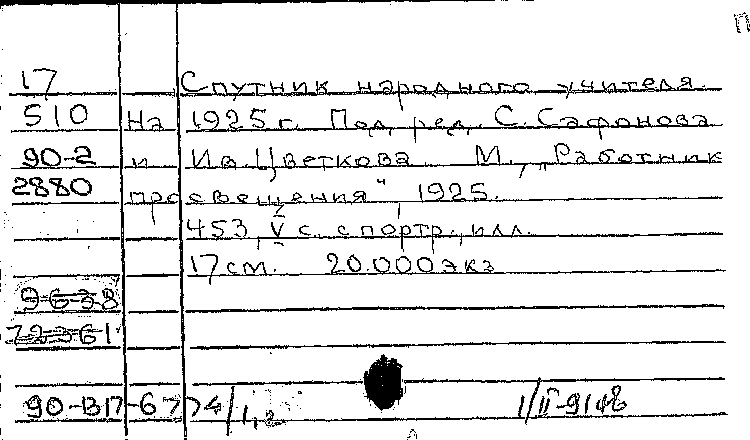 П
17 Спутник народного учителя
510 На 1925 г. Под ред. С. Сафонова
90-2 и Ив. Цветкова М., „Работник
2880 просвещения", 1925.
453, V с. с портр., илл.
17 см. 20.000 экз
9638
72361
90-В17-6774/1,2